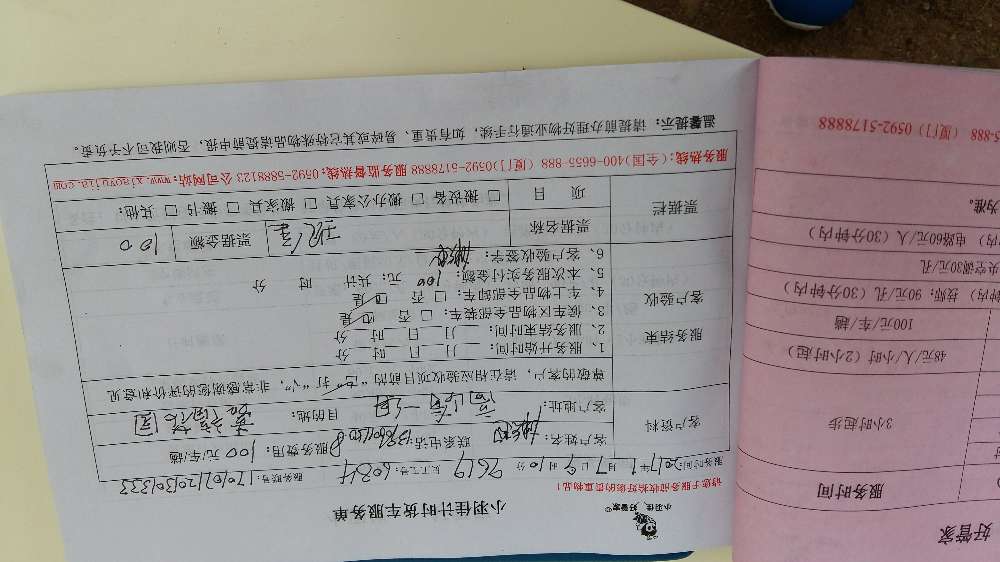 小羽佳 好管家
小羽佳计时货车服务单
请您于服务前收拾好您的贵重物品!
服务时间:2017年1月7日9时10分 员工工号:6034 服务联号:170107120130333
客户资料
客户姓名: 联系电话 服务费用:100元/车/趟
客户地址: 目的地:
尊敬的客户,请在相应验收项目前的“□”打“√”,非常感谢您的评价和意见
服务结束
客户验收
1、服务开始时间:__月__日__时__分
2、服务结束时间:__月__日__时__分
3、候车区物品全部装车:□是 □否
4、车上物品全部卸车:□是 □否
5、本次服务实付金额:100元。共计 时 分
6、客户验收签字:
票据栏
票据名称 现金 票据金额 100
项 目 □ 搬设备 □ 搬办公家具 □ 搬家具 □ 搬书 □ 其他:
服务热线:(全国)400-6655-888 (厦门)0592-5178888 服务监督热线:0592-5888123 公司网站:www.xiaoyujia.com
温馨提示:请提前办理好物业通行手续,如有贵重、易碎或其它特殊物品请提前申报,否则我司不予负责。
好管家
服务时间
3小时起步
48元/人/小时(2小时起)
100元/车/趟
技师:90元/孔(30分钟内)
30元/孔
电路60元/人(30分钟内)
为准。
5-888 (厦门)0592-5178888